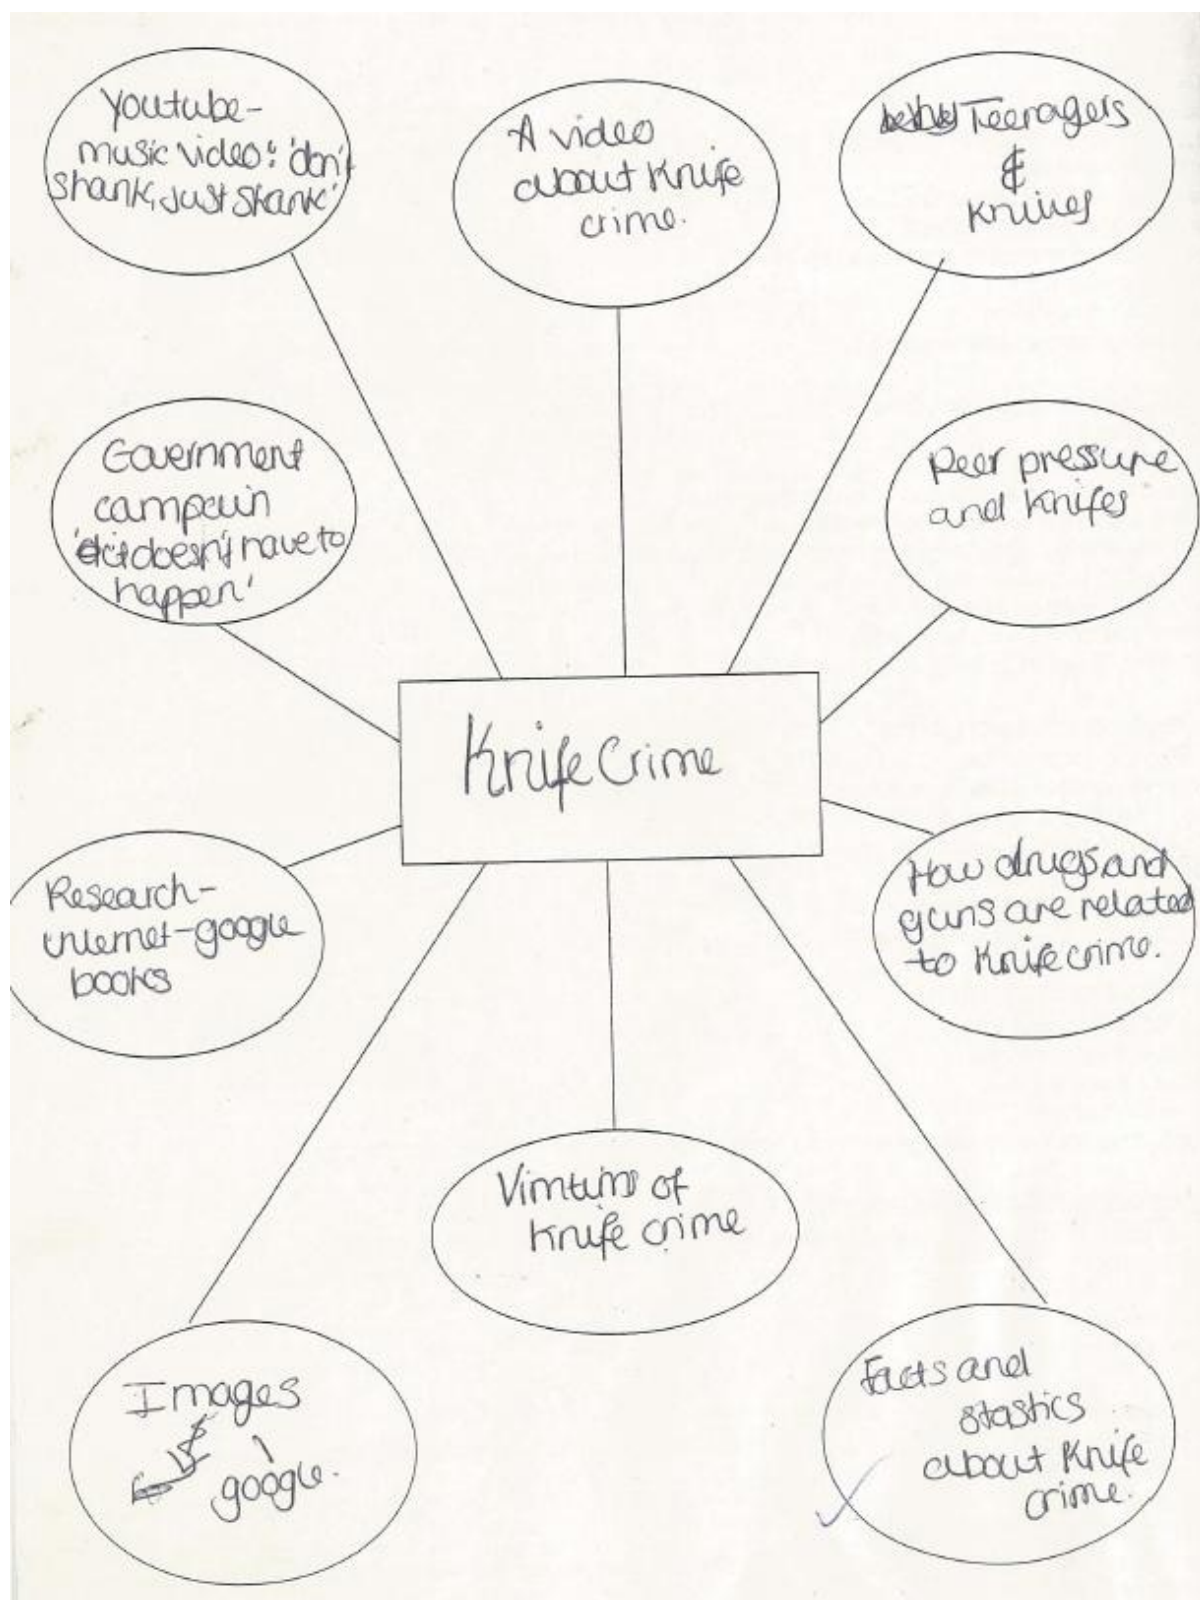 Youtube-
music video: 'don't
shank, just skank'
A video
about Knife
crime.
Teenagers
&
Knives
Government
campain
'it doesn't have to
happen'
Peer pressure
and Knifes
Knife Crime
Research-
internet-google
books
How drugs and
guns are related
to Knife crime.
Vimtims of
Knife crime
Images
google.
Facts and
stastics
about Knife
crime.